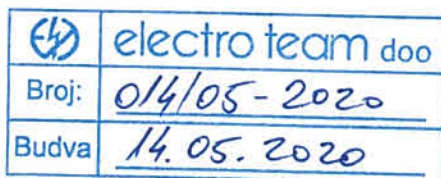 electro team doo
Broj: 014/05-2020
Budva 14. 05. 2020